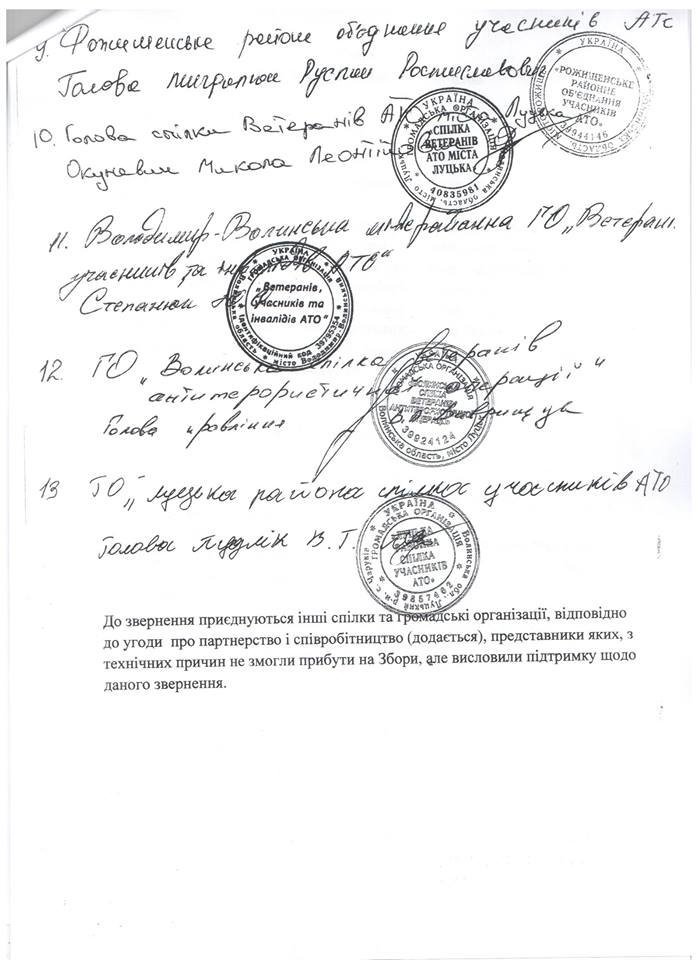 9. Рожищенське районе об'єднання учасників АТО
Голова Руслан Ростиславович
УКРАЇНА
«РОЖИЩЕНСЬКЕ
РАЙОННЕ
ОБ'ЄДНАННЯ
УЧАСНИКІВ
АТО»
10. Голова спілки Ветеранів АТО міста Луцька
Окуневич Микола Леонтій
УКРАЇНА
ГРОМАДСЬКА ОРГАНІЗАЦІЯ
СПІЛКА
ВЕТЕРАНІВ
АТО МІСТА
ЛУЦЬКА
40835981
Волинська область, місто Луцьк
11. Володимир-Волинська міжрайонна ГО „Ветерані.
учасників та інвалідів АТО"
Степанюк
УКРАЇНА
ГРОМАДСЬКА ОРГАНІЗАЦІЯ
„Ветеранів,
учасників та
інвалідів АТО"
Ідентифікаційний код 39795354
Волинська область місто Володимир-Волинський
12. ГО „Волинська спілка ветеранів
антитерористичної операції"
Голова правління
УКРАЇНА
ГРОМАДСЬКА ОРГАНІЗАЦІЯ
ВОЛИНСЬКА
СПІЛКА
ВЕТЕРАНІВ
АНТИТЕРОРИСТИЧНОЇ
ОПЕРАЦІЇ
39924124
Волинська область, місто Луцьк
13 ГО „Луцька районa спілка учасників АТО
Голова В. Г.
УКРАЇНА
ГРОМАДСЬКА ОРГАНІЗАЦІЯ
СПІЛКА
УЧАСНИКІВ
АТО»
39857462
Волинська обл., Луцький р-н, с. Чаруків
До звернення приєднуються інші спілки та громадські організації, відповідно
до угоди про партнерство і співробітництво (додається), представники яких, з
технічних причин не змогли прибути на Збори, але висловили підтримку щодо
даного звернення.